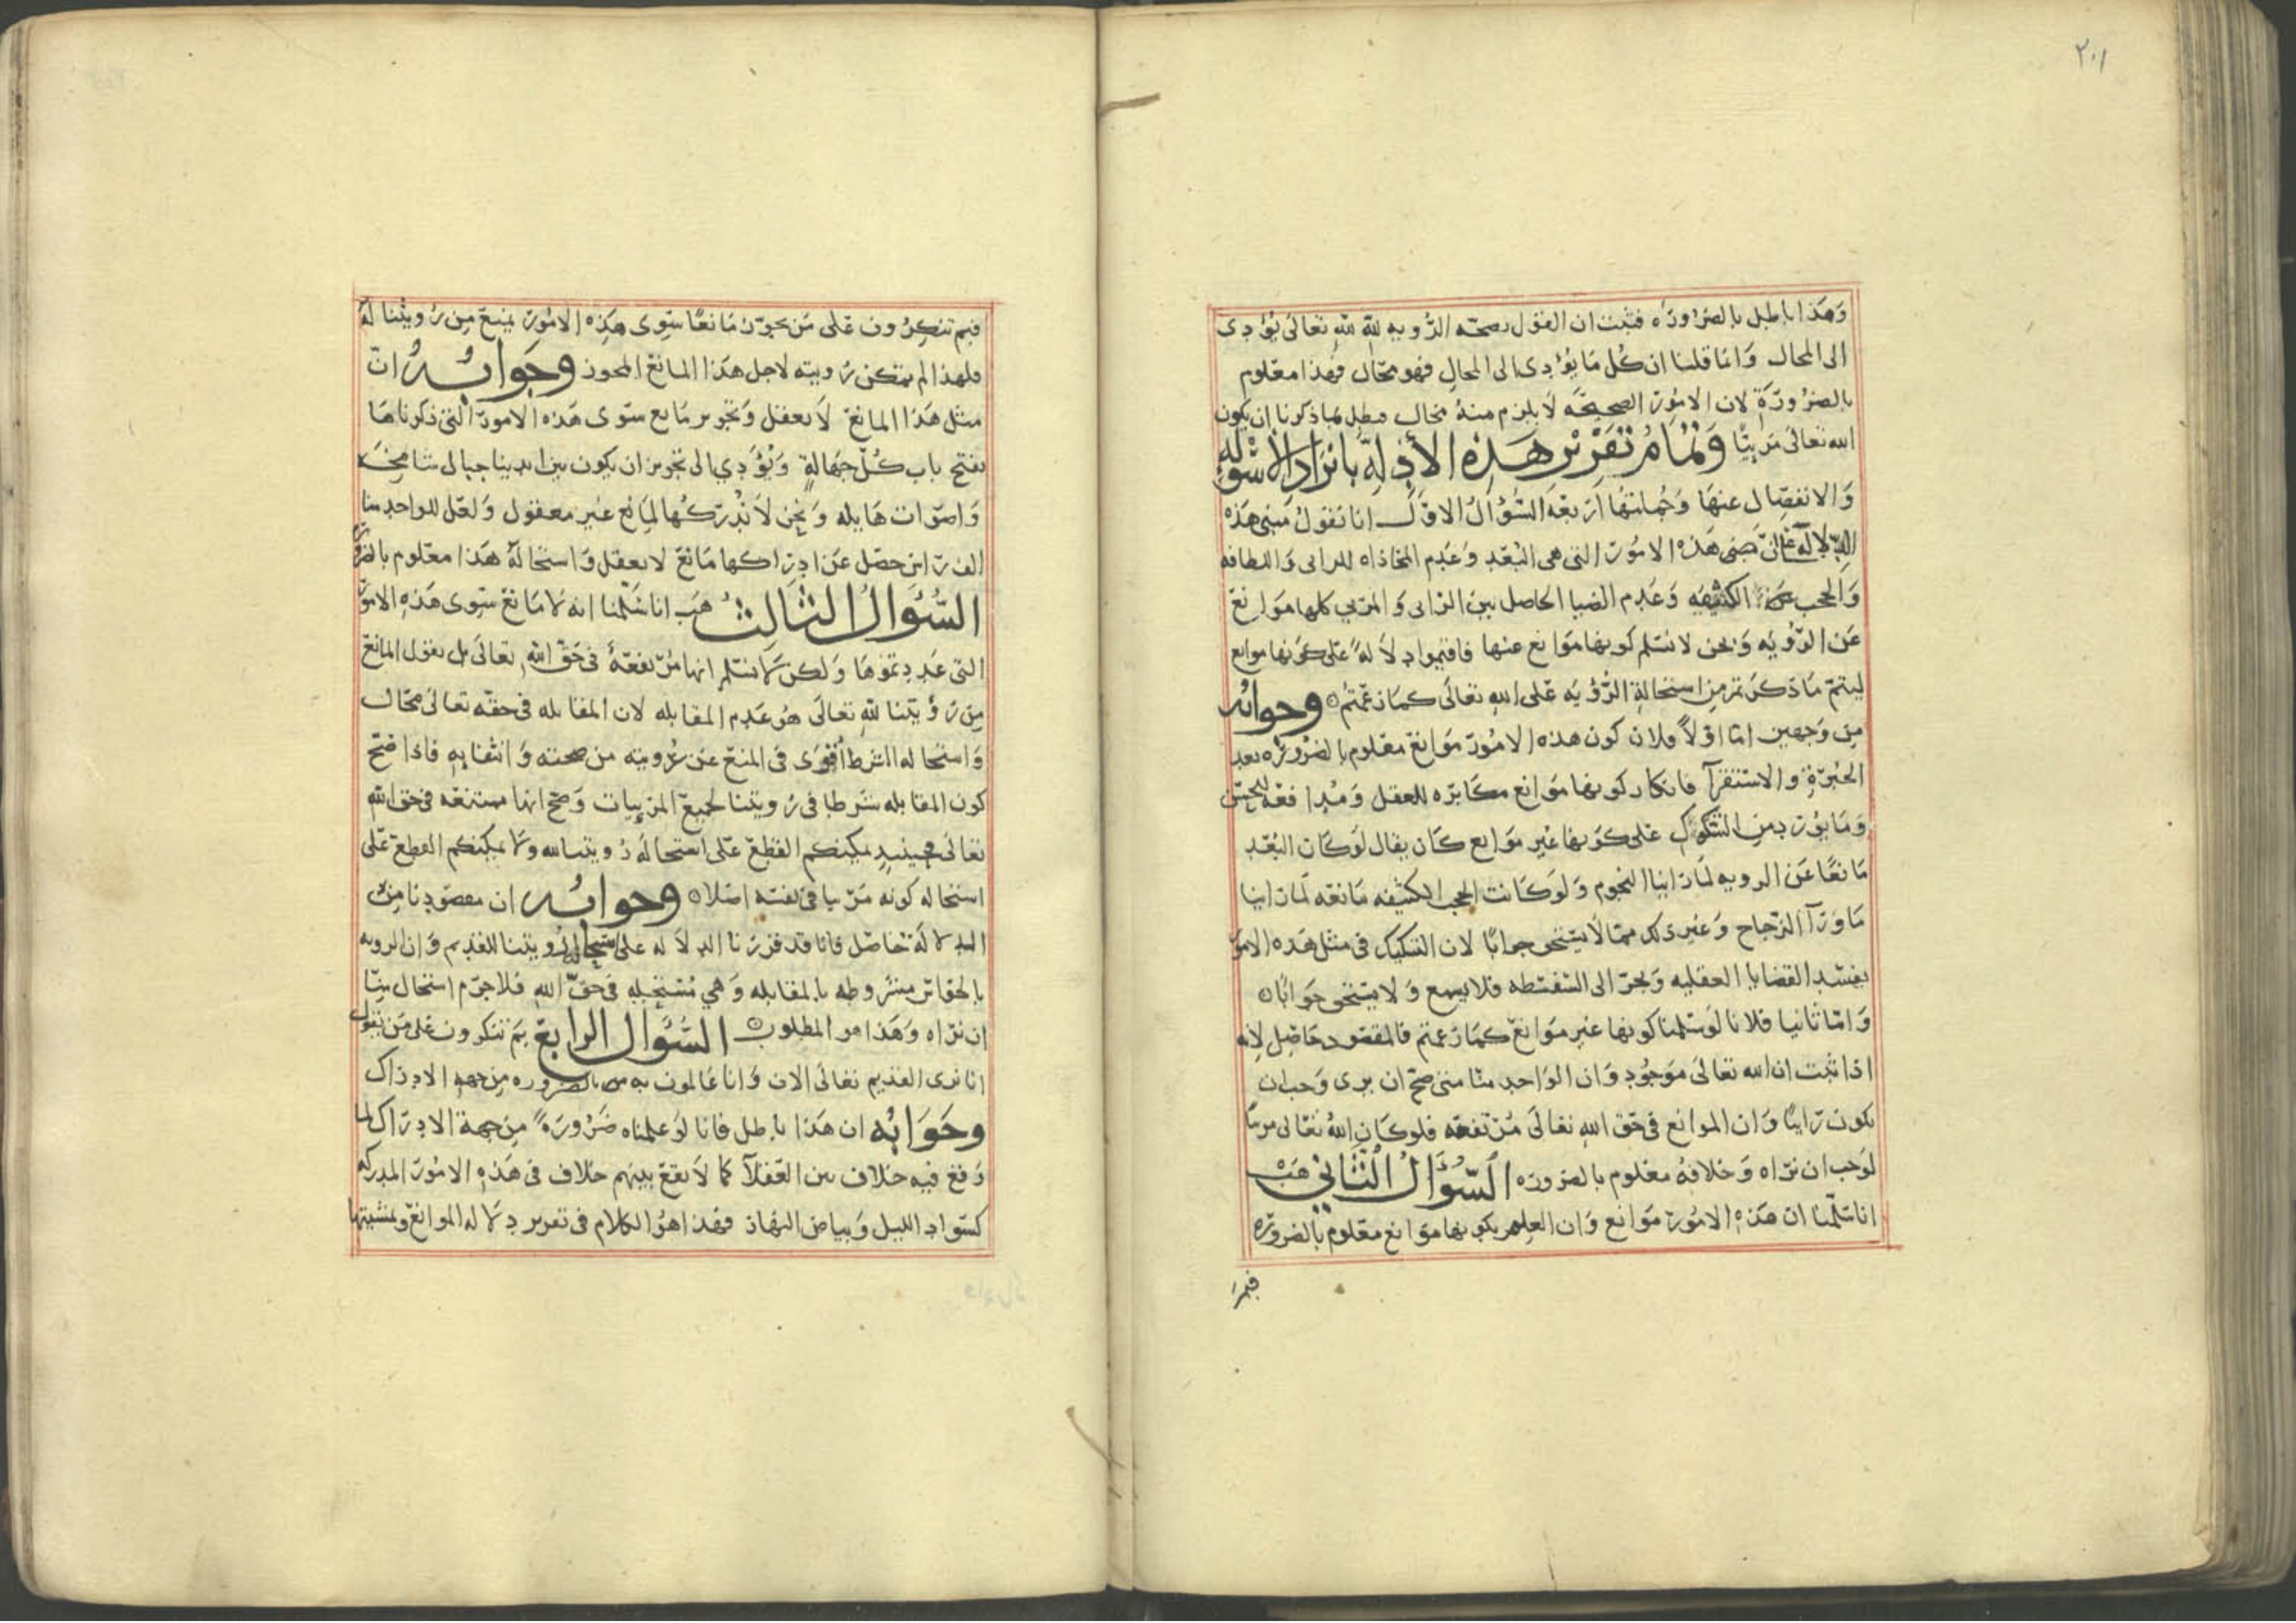 ٢٠١
وهذا باطل بالضروره فثبت ان القول بصحه الرويه لله تعالى يؤدى
الى المحال وانما قلنا ان كل ما يؤدى الى المحال فهو محال فهذا معلوم
بالضرورة لان الامور الصحيحه لا يلزم منه محال فبطل بما ذكرنا ان يكون
الله تعالى مرئيا وتمام تقرير هذه الأدلة بايراد الاسوله
والانفصال عنها وجملتها اربعة السؤال الاول انا نقول مبنى هذه
الدلالة على ان هذه الامور التى هى البعد وعدم المحاذاه للرايى واللطافه
والحجب الكثيفه وعدم الضيا الحاصل بين الرايى والمريى كلها موانع
عن الرؤيه ونحن لا نسلم كونها موانع عنها فاقيموا دلالة على كونها موانع
ليتم ما ذكرتم من استحالة الرؤيه على الله تعالى كما زعمتم وجوابه
من وجهين اما اولا فلان كون هذه الامور موانع معلوم بالضروره بعد
الخبرة والاستقرآ فانكار كونها موانع مكابره للعقل ومدافعه للحس
وما يورد من الشكوك على كونها غير موانع كان يقال لو كان البعد
مانعا عن الرويه لما راينا النجوم ولو كانت الحجب الكثيفه مانعه لما راينا
ما ورآ الزجاج وغير ذلك مما لا يستحق جوابا لان التشكيك في مثل هذه الامور
يفسد القضايا العقليه ويجر الى السفسطه فلا يسمع ولا يستحق جوابا
واما ثانيا فلانا لو سلمنا كونها غير موانع كما زعمتم فالمقصود حاصل لانه
اذا ثبت ان الله تعالى موجود وان الواحد منا متى صح ان يرى وجب ان
يكون رايئا وان الموانع في حق الله تعالى مرتفعه فلو كان الله تعالى مرئيا
لوجب ان نراه وخلافه معلوم بالضروره السؤال الثاني هب
انا سلمنا ان هذه الامور موانع وان العلم بكونها موانع معلوم بالضروره
فبم
فبم تنكرون على من يجوز مانعا سوى هذه الامور يمنع من رويتنا له
فلهذا لم يتمكن رويته لاجل هذا المانع المجوز وجوابه ان
مثل هذا المانع لا يعقل وتجويز مانع سوى هذه الامور التى ذكرناها
يفتح باب كل جهالة ويؤدي الى تجويز ان يكون بين ايدينا جبال شامخه
واصوات هايله ونحن لا ندركها لمانع غير معقول ولعل للواحد منا
الف راس حصل عن ادراكها مانع لا يعقل واستحالة هذا معلوم بالضرورة
السؤال الثالث هب انا سلمنا انه لا مانع سوى هذه الامور
التى عددتموها ولكن لا نسلم انها مرتفعة في حق الله تعالى بل نقول المانع
من رؤيتنا لله تعالى هو عدم المقابله لان المقابله في حقه تعالى محال
واستحاله الشرط اقوى في المنع عن مشروطه من صحته وانتفايه فاذا صح
كون المقابله شرطا في رويتنا لجميع المرييات وصح انها ممتنعه في حق الله
تعالى فحينيذ يمكنكم القطع على استحاله رويتنا لله ولا يمكنكم القطع على
استحاله كونه مرييا في نفسه اصلا وجوابه ان مقصودنا من
الدلالة حاصل فانا قد قررنا الدلاله على استحاله رويتنا للقديم وان الرويه
بالحواس مشروطه بالمقابله وهي مستحيله في حق الله فلا جرم استحال منا
ان نراه وهذا هو المطلوب السؤال الرابع بم تنكرون على من يقول
انا نرى القديم تعالى الان وانا عالمون به بالضروره من جهه الادراك
وجوابه ان هذا باطل فانا لو علمناه ضرورة من جهة الادراك لما
وقع فيه خلاف بين العقلآ كما لا يقع بينهم خلاف في هذه الامور المدركه
كسواد الليل وبياض النهار فهذا هو الكلام في تقرير دلاله الموانع ولمشيتها